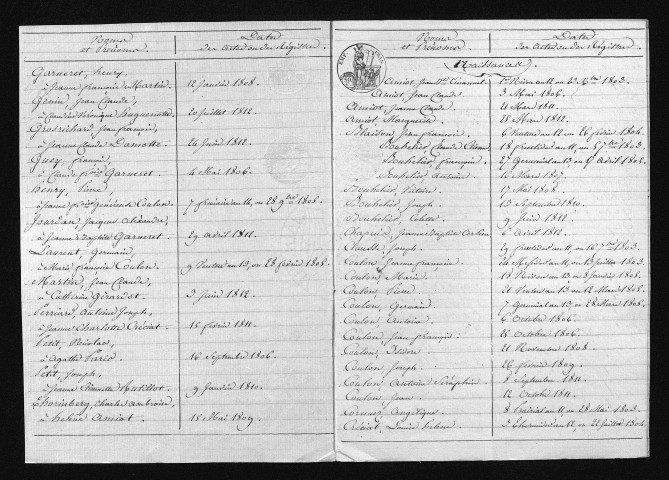 Noms et Prénoms
Dates des Actes ou des Registres
Garneret, henry,
à Jeanne françoise Martin. 12 Janvier 1808.
Genin, Jean Claude,
à Claudine Véronique huguenotte 20 Juillet 1812.
Grosrichard, Jean françois,
à Jeanne Claude Danotte. 24 Juin 1812.
Guey, françois,
à Claude Garneret. 4 Mai 1806.
henry, Pierre,
à Jeanne Générale Coulon. 7 frimaire an 14, ou 28 9bre 1805.
Jourdan, Jacques Alexandre,
à Jeanne Baptiste Garneret. 29 avril 1812.
Laurent, Germain,
à Marie françoise Coulon. 9 Ventose an 13, ou 28 février 1805.
Martin, Jean Claude,
à Catherine Girardot. 3 Juin 1812.
Perriard, Antoine Joseph,
à Jeanne Charlotte Créciat. 15 février 1811.
Petit, Nicolas,
à Agathe Paris. 16 Septembre 1806.
Petit, Joseph,
à Jeanne Pierrette Mutillot. 9 Janvier 1810.
Thorimberg, Charles Ambroise,
à helene Amiot. 15 Mai 1809.
Noms et Prénoms
Dates des Actes ou des Registres
Naissances
Amiot, Jean 1803.
Amiot, Jean Claude. 3 Mai 1806.
Amiot, Jeanne Claude. 21 Mai 1811.
Amiot, Marguerite. 28 Mars 1812.
Blaison, Jean françois. 6 Ventose an 12, ou 26 février 1804.
Bouhelier, Claude Etienne. 18 fructidor an 11, ou 5 7bre 1803.
Bouhelier, françois. 27 Germinal an 13, ou avril 1805.
Bouhelier, Antoine. 16 Mars 1807.
Bouhelier, Victoire. 17 Mai 1808.
Bouhelier, Joseph. 13 Septembre 1810.
Bouhelier, Colette. 9 Juin 1812.
Chapuis, Jeanne Baptiste avril 1812.
Claude, Joseph. 29 fructidor an 11, ou 16 7bre 1803.
Coulon, Jeanne françoise. 24 Messidor an 11, ou 13 Juillet 1803.
Coulon, Marie. 18 Nivose an 13, ou 8 Janvier 1805.
Coulon, Pierre. 21 Ventose an 13, ou 12 Mars 1805.
Coulon, Germain. 7 Germinal an 13, ou 28 Mars 1805.
Coulon, Antoine. 6 Octobre 1806.
Coulon, Jean françois. Octobre 1806.
Coulon, Isidore. 21 Novembre 1808.
Coulon, Joseph. 26 février 1809.
Coulon, Antoine Séraphin. Septembre 1811.
Coulon, Jean. 12 Octobre 1811.
Angélique. 8 Prairial an 11, ou 28 Mai 1803.
Créciat, Louise helene. 3 Thermidor an 12, ou 22 Juillet 1804.